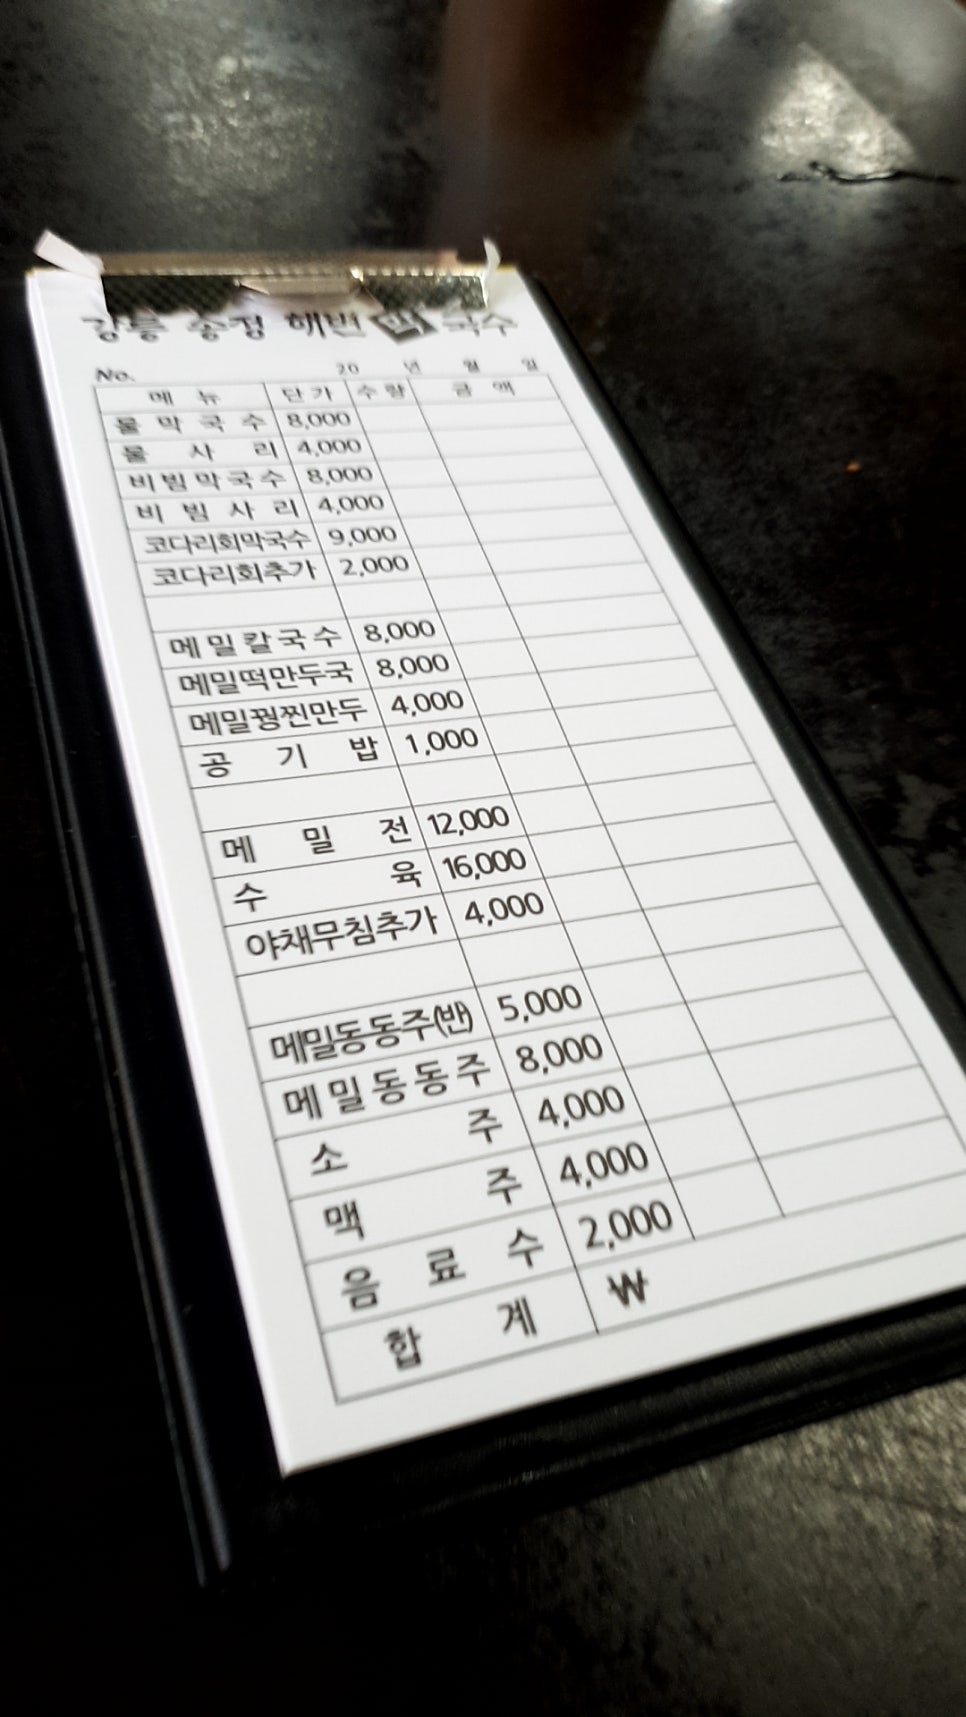 강릉 송정 해변 막국수
No. 20 년 월 일
메 뉴 단 가 수 량 금 액
물 막 국 수 8,000
물 사 리 4,000
비 빔 막 국 수 8,000
비 빔 사 리 4,000
코다리회막국수 9,000
코다리회추가 2,000
메 밀 칼 국 수 8,000
메밀떡만두국 8,000
메밀꿩찐만두 4,000
공 기 밥 1,000
메 밀 전 12,000
수 육 16,000
야채무침추가 4,000
메밀동동주(반) 5,000
메 밀 동 동 주 8,000
소 주 4,000
맥 주 4,000
음 료 수 2,000
합 계 ₩